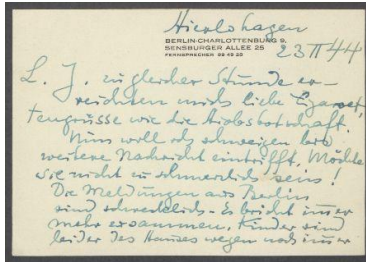 BERLIN-CHARLOTTENBURG 9,
SENSBURGER ALLEE 25
FERNSPRECHER 99 43 25
23 II 44
L. J. zu gleicher Stunde er-
reichten mich liebe
wie die Hiobsbotschaft.
Nun will ich schweigen bis
weitere Nachricht eintrifft. Möchte
sie nicht zu schmerzlich sein!
Die Meldungen aus Berlin
sind schrecklich - Es bricht immer
mehr zusammen. Kinder sind
leider des Hauses wegen noch immer